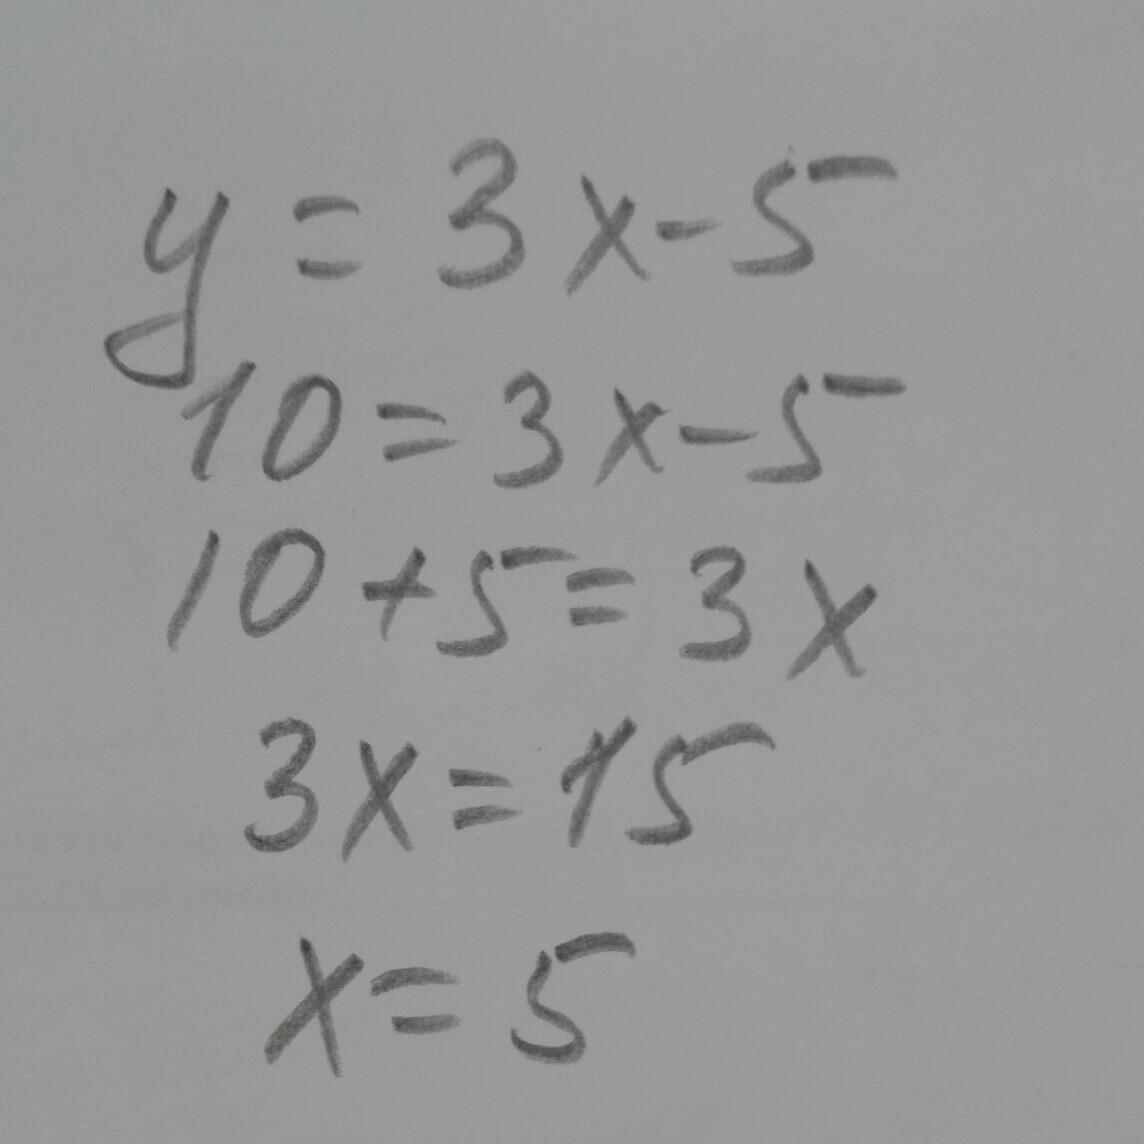 y = 3x-5
10=3x-5
10+5=3x
3x=15
x=5